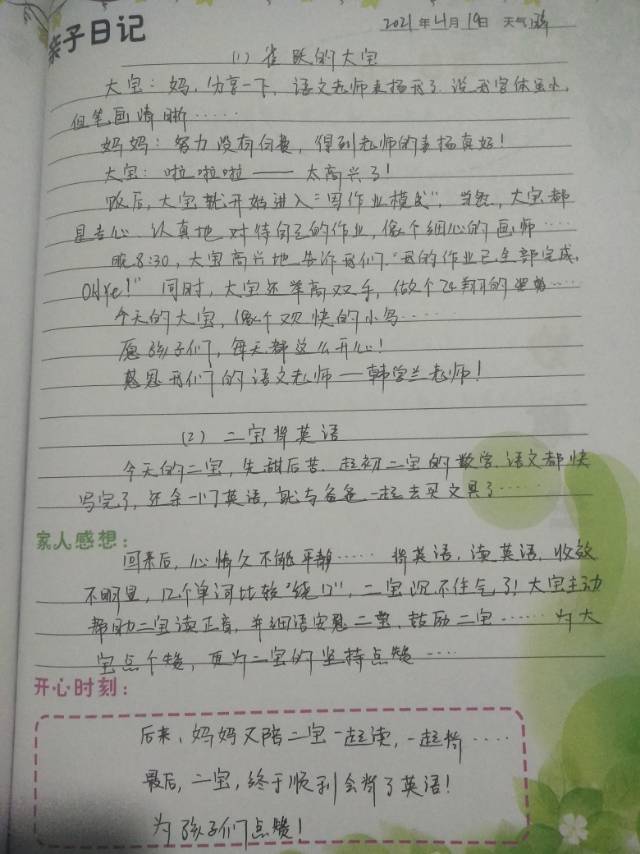 亲子日记
2021年4月19日 天气晴
(1) 雀跃的大宝
大宝：妈，分享一下，语文老师表扬我了，说我字体虽小，
但笔画清晰……
妈妈：努力没有白费，得到老师的表扬真好！
大宝：啦啦啦——太高兴了！
饭后，大宝就开始进入“写作业模式”，当然，大宝都
是专心、认真地对待自己的作业，像个细心的画师……
晚8:30，大宝高兴地告诉我们，“我的作业已全部完成，
OHYe！”同时，大宝还举高双手，做个飞翔的姿势……
今天的大宝，像个欢快的小鸟……
愿孩子们，每天都这么开心！
感恩我们的语文老师—韩学兰老师！
(2) 二宝背英语
今天的二宝，先甜后苦，起初二宝的数学、语文都快
写完了，还余一门英语，就与爸爸一起去买文具了……
家人感想：
回来后，心情久不能平静……背英语，读英语，收效
不明显，12个单词比较“绕口”，二宝沉不住气了！大宝主动
帮助二宝读正音，并细语安慰二宝，鼓励二宝……为大
宝点个赞，更为二宝的坚持点赞……
开心时刻：
后来，妈妈又陪二宝一起读，一起背……
最后，二宝，终于顺利会背了英语！
为孩子们点赞！